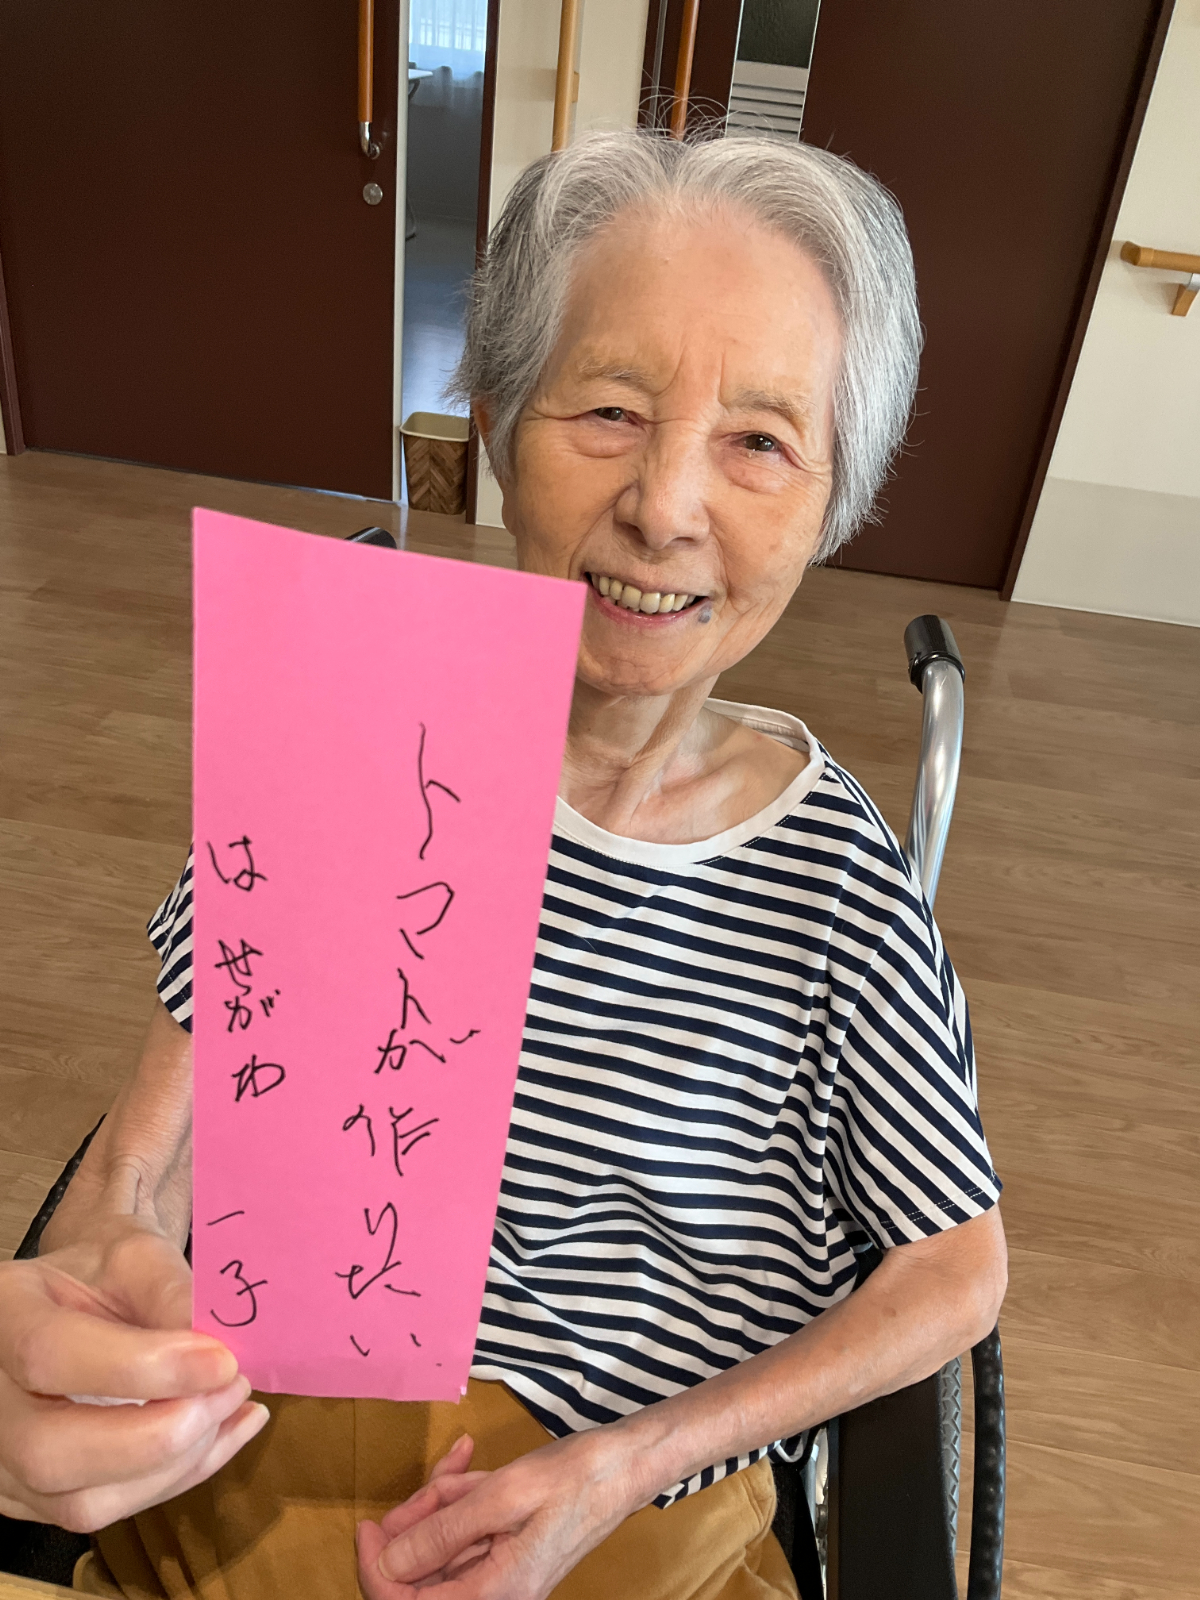 トマトが作りたい
はせがわ 一子